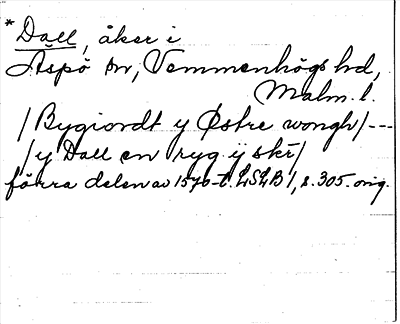 * Dall, åker i
Äspö sn, Vemmenhögs hd,
Malm. l.
/Bygiordt y Østre wongh/---
/y Dall en ryg ij skr/
förra delen av 1570-t. LSLB 1, s. 305. orig.